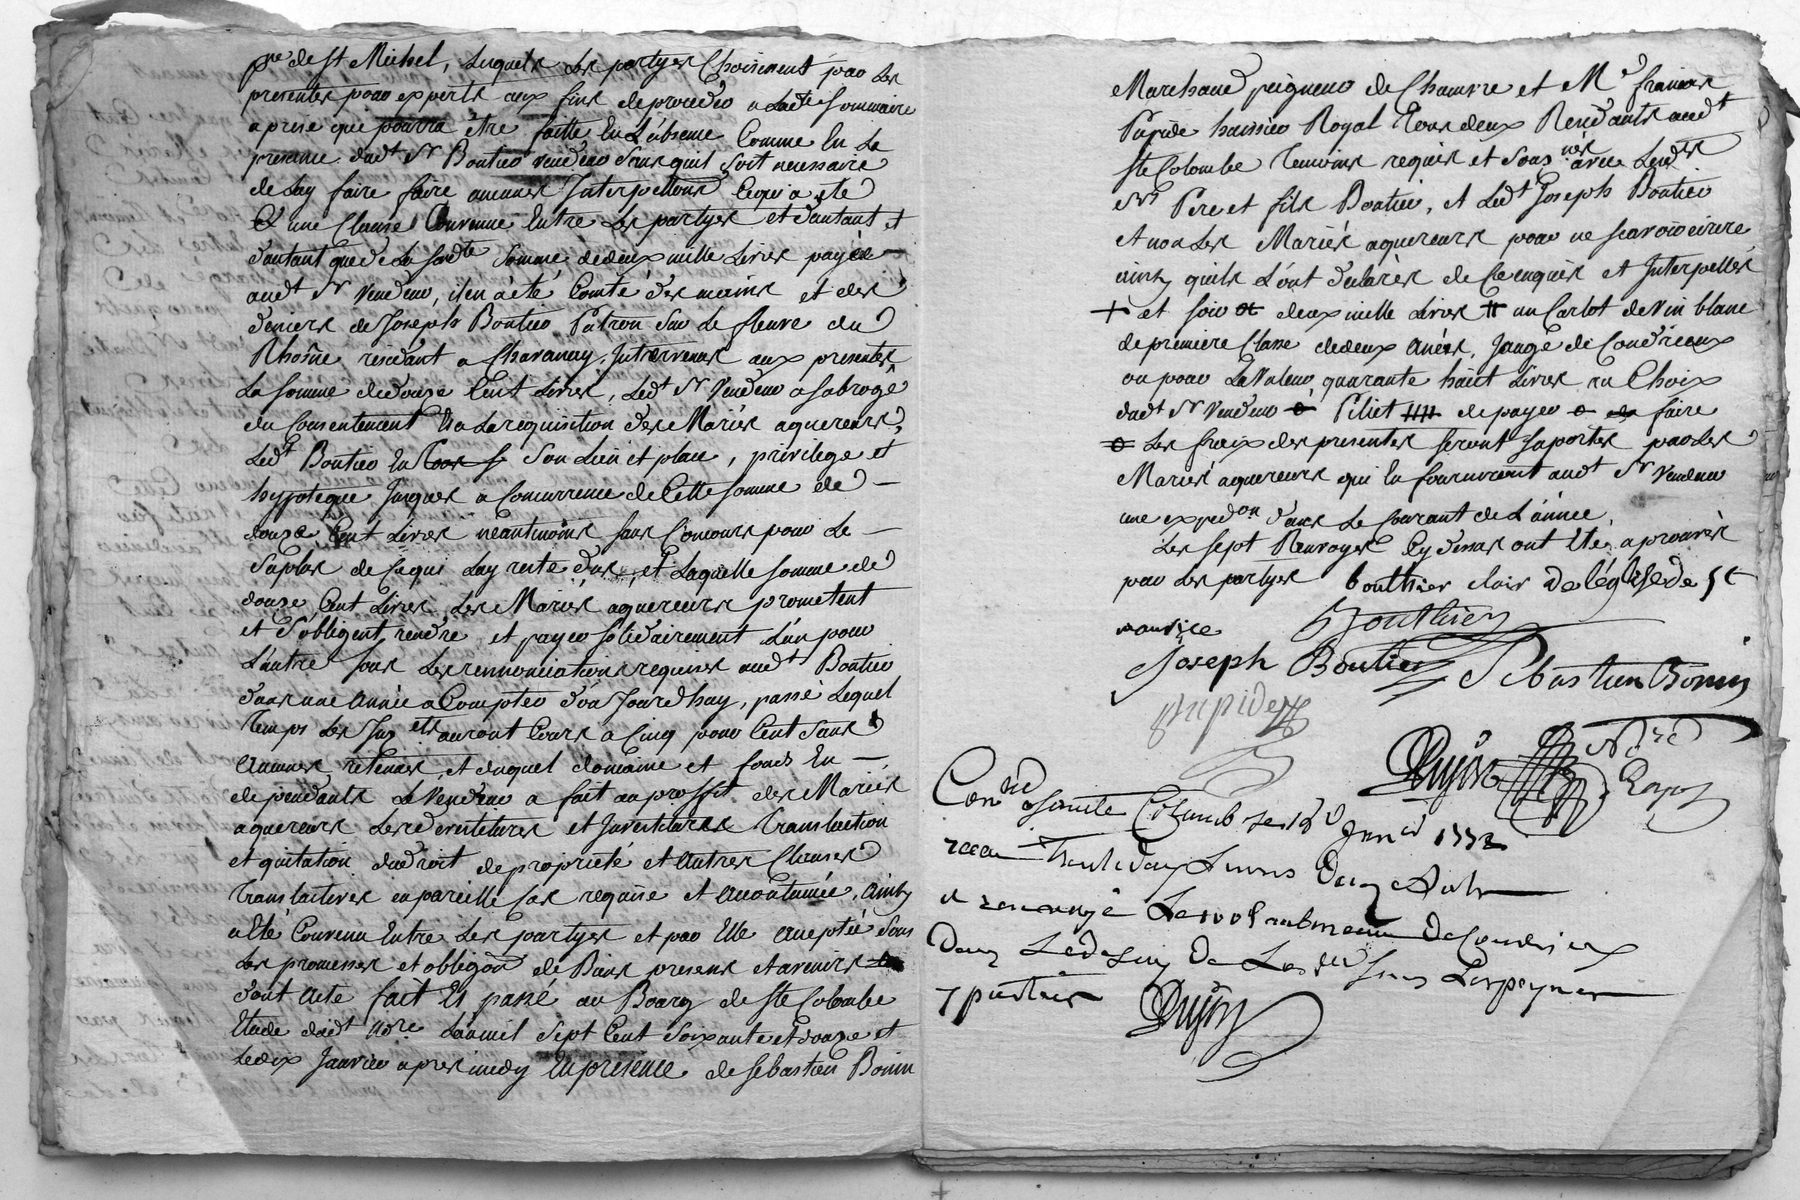 pse de St Michel, lesquels les partyes Choisissent par les
presentes pour experts aux fins de proceder a ladte sommaire
aprise que pourra être faitte En L'absence Comme En La
presence dudt Sr Boutier vendeur sans quil soit necessaire
de Luy faire faire aucunes Interpellons Ce qui a eté
Une Clause Convenue Entre les partyes et d'autant +
d'autant que de La sudte somme de deux mille Livres payée
audt Sr vendeur, il en a été Comté des mains et des
deniers de Joseph Boutier Patron sur le fleuve du
Rhosne residant a Chavanay, Intervenant aux presentes
La somme de douze Cent Livres, Ledt Sr Vendeur a subrogé
du Consentement et a La requisition des Mariés aquereurs,
Ledt Boutier En son Lieu et place, privilege et
hypoteque Jusques a Concurrence de Cette somme de
douze Cent Livres neantmoins sans Concours pour Le
Surplus de Ce qui Luy reste dus, et Laquelle somme de
douze Cent Livres Les Mariés aquereurs prometent
et S'obligent rendre et payer solidairement L'un pour
L'autre sous Les rennonciations requises audt Boutier
dans une Année a Compter d'aujourdhuy, passé Lequel
Temps Les Interets auront Cours a Cinq pour Cent Sans
Aucunes retenues, et duquel domaine et fonds En
dependants Le Vendeur a fait au proffit des Mariés
aquereurs Les devetitures et Investitures Translation
et quitation du droit de proprieté et Autres Clauses
Translatives en pareille Cas requise et Accoutumée, Ainsy
a Eté Convenu Entre Les partyes et par Elle Acceptée Sous
Les promesses et obligons de Biens presens et avenirs
dont Acte fait Et passé au Bourg de Ste Colombe
Etude dudt Nore L'an mil Sept Cent Soixante et douze et
Le dix Janvier apres midy En presence de Sebastien Bonin
Marchand peigneur de Chanvre et Me francois
Pupide huissier Royal Tous deux Residants audt
Ste Colombe Temoins requis et Sousnés avec Lesdts
Srs Pere et fils Boutier, et Ledt Joseph Boutier
et non Les Mariés aquereurs pour ne scavoir ecrire
ainsy quils L'ont declarés de Ce enquis et Interpellés
+ et pour deux mille Livres # un Carlot de vin blanc
de premiere Classe de deux Anées, Jauge de Condrieux
ou pour La Valeur, quarante huit Livres au Choix
dudt Sr vendeur Piliet de payer faire
Les frais des presentes seront suportés par Les
Mariés aquereurs qui En fourniront audt Sr Vendeur
une expedon dans Le Courant de L'année,
Les Sept Renvoyes Cy dessus ont Eté aprouvés
par Les partyes bouthier clair de léglise de st
maurice Bouthier
Joseph Boutier Sebastien Bonin
pupide
Dujon Nore Royal
Conlé a Sainte Colombe le 18e Janer 1772
recu Trente deux Livres
et renvoyé Le Condrieux
Dujon